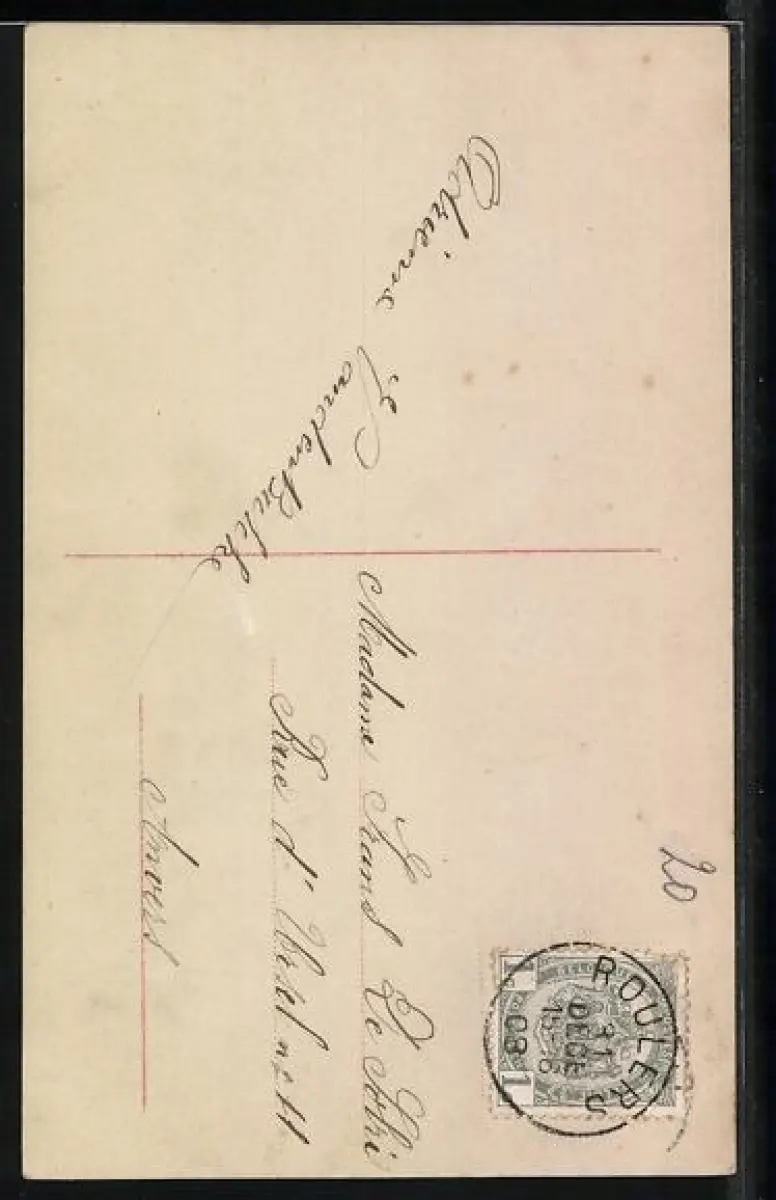 Adrienne
VandenBulcke
Madame Frans De
Rue d'Ursel nº 11
Anvers
20
ROULERS
31
DECE
1908
1 1